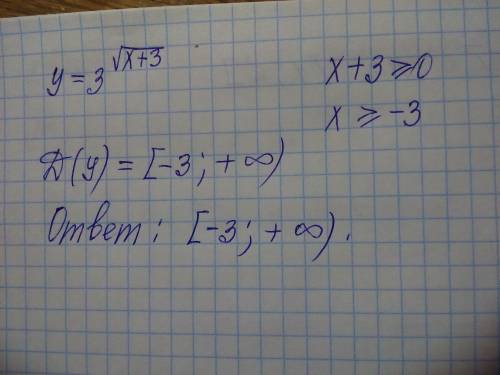 y = 3^√(x+3)
x + 3 ⩾ 0
x ⩾ -3
D(y) = [-3; +∞)
Ответ: [-3; +∞).